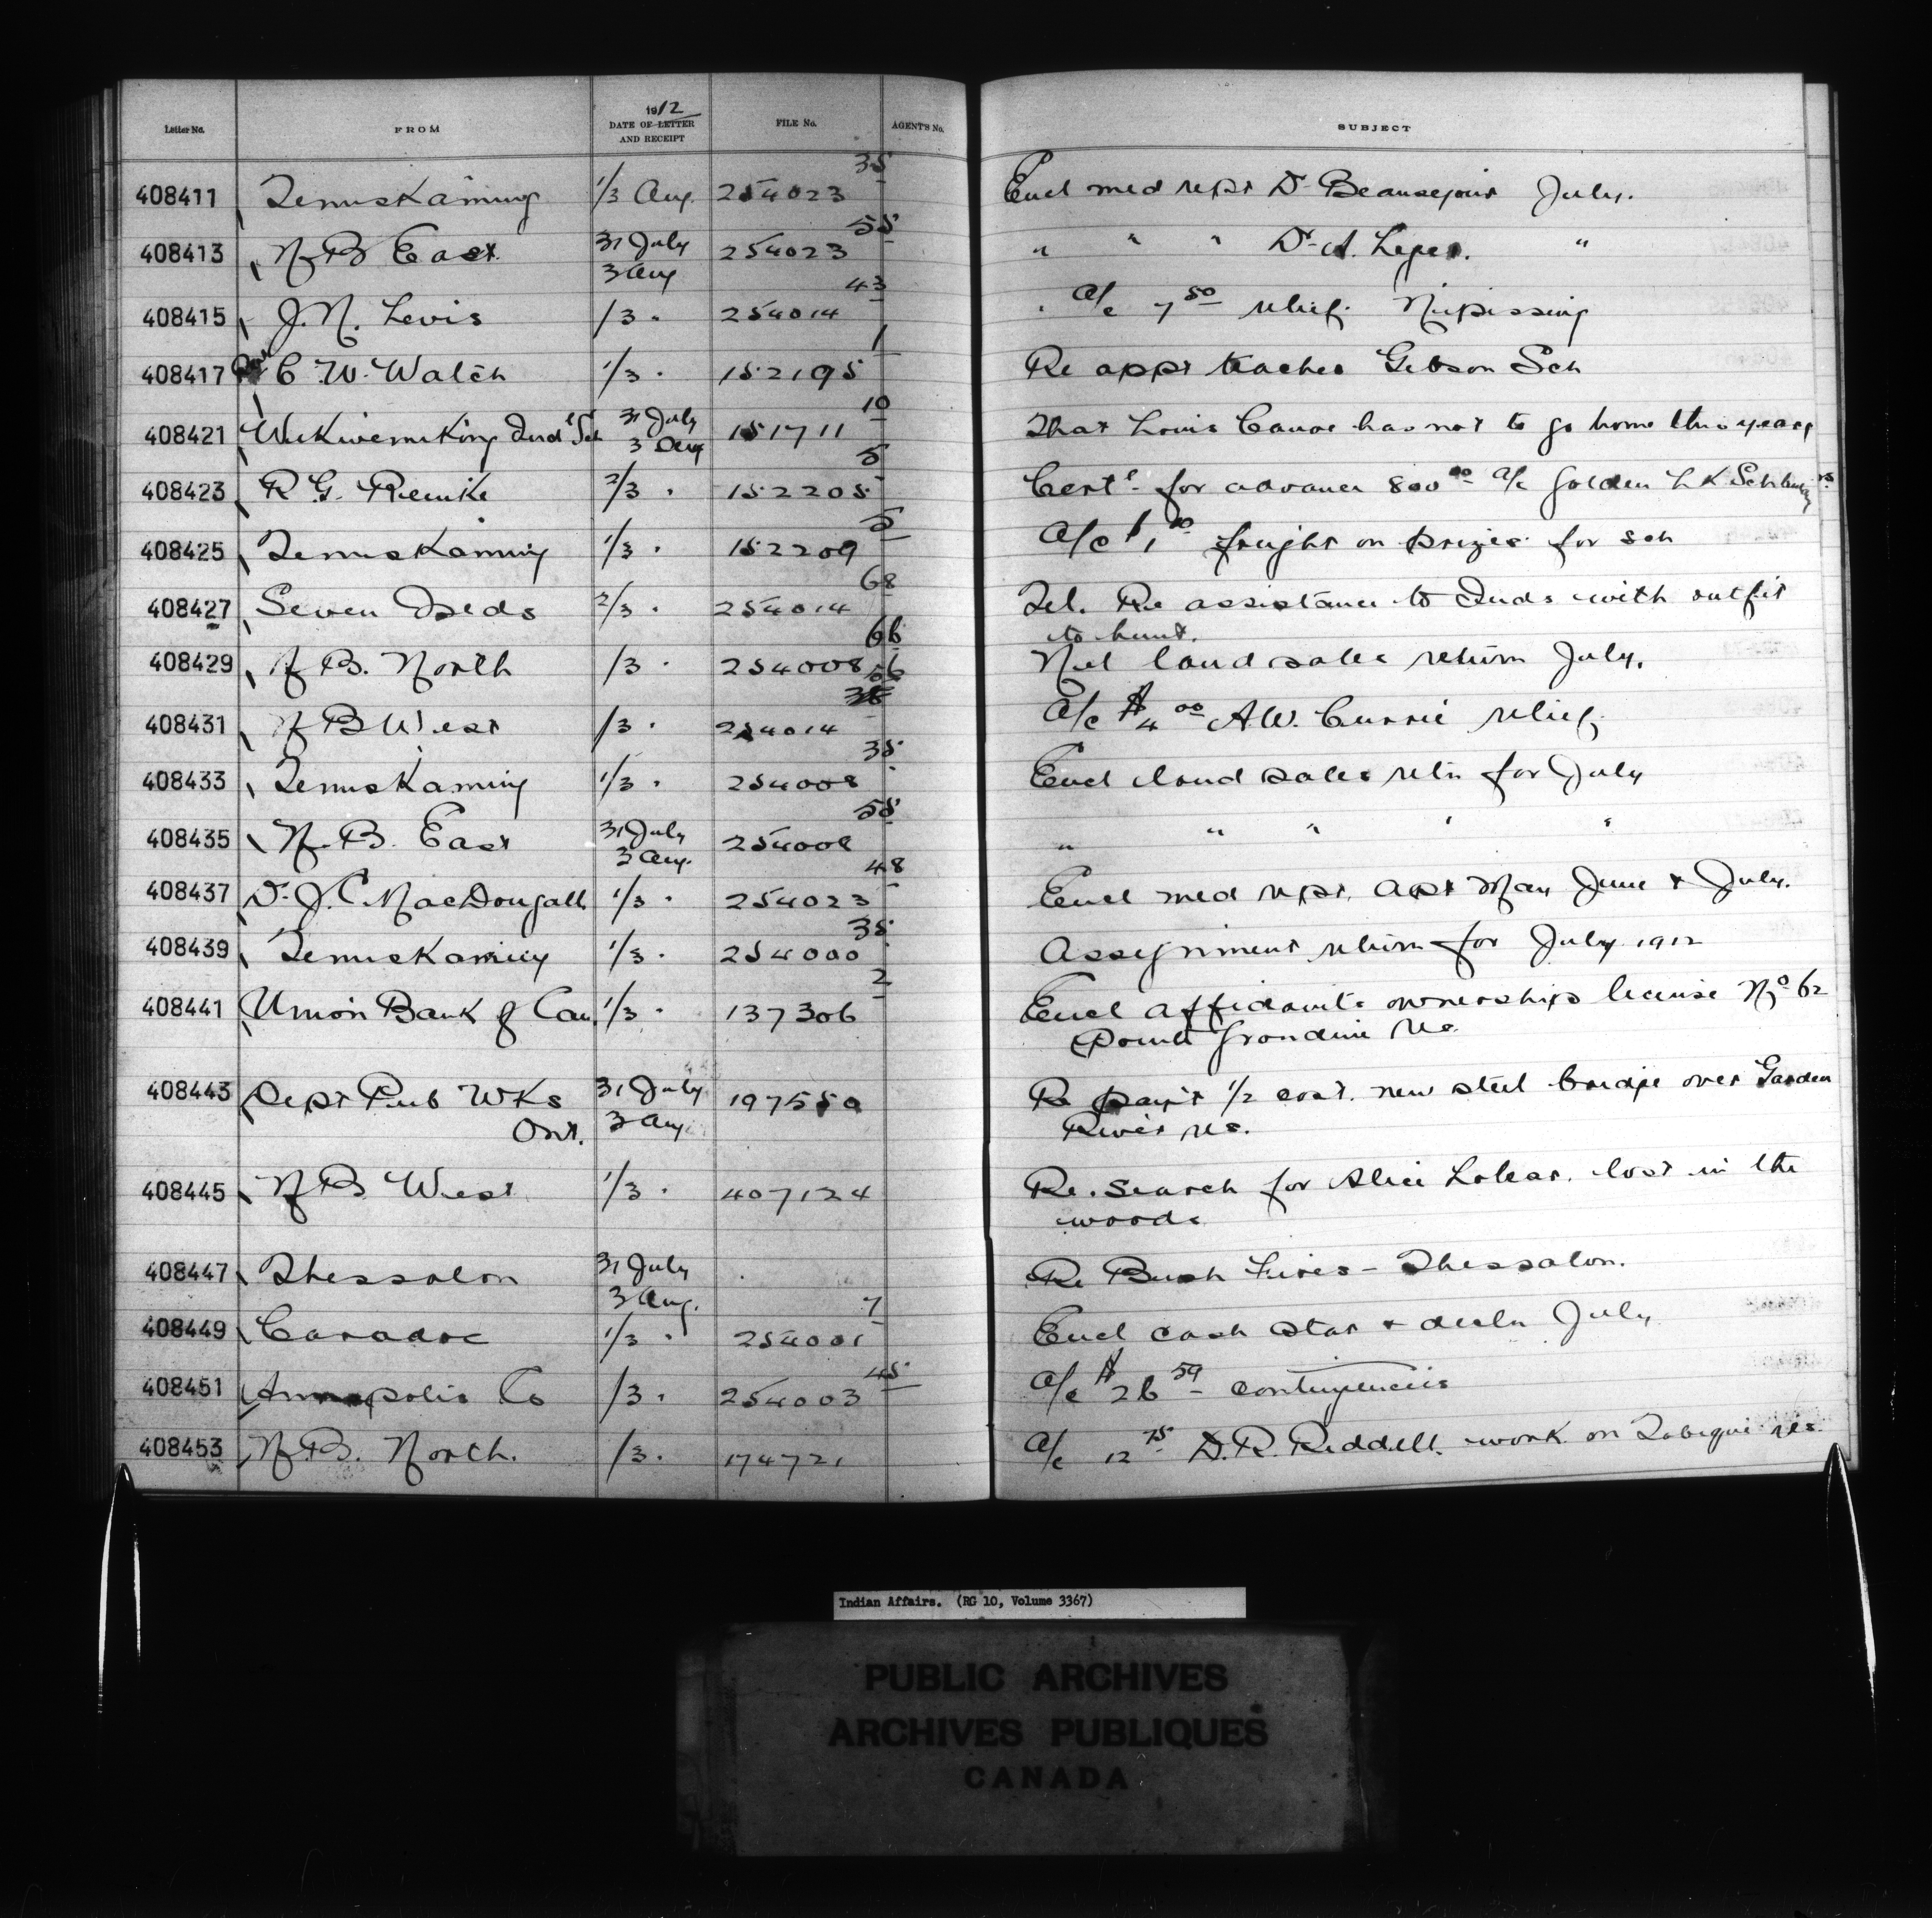 1912
Letter No. FROM DATE OF LETTER AND RECEIPT FILE No. AGENT'S No. SUBJECT
35
408411 Temiskaming 1/3 Aug. 254023 Encl med rept Dr Beausejour July.
55
408413 N B East 31 July 3 Aug 254023 " " " Dr A. Leger. "
43
408415 J. N. Levis /3 " 254014 " a/c 7 50 relief. Nipissing
1
408417 Rev C. W. Watch 1/3 " 152195 Re appt teacher Gibson Sch
10
408421 Wikwemikong Indl Sch 31 July 3 Aug 151711 That Louis Canoe has not to go home this year
5
408423 R G. 2/3 " 152205 Cert. for advance 800 00 a/c Golden Lk Sch
5
408425 Temiskaming 1/3 " 152209 a/c $1 00 freight on prizes for sch
68
408427 Seven Islds 2/3 " 254014 Tel. Re assistance to Inds with outfit
to hunt.
66
408429 N B. North /3 " 254008 Nil land sales return July.
56
408431 N B West /3 " 254014 a/c $4 00 A.W. Currie relief.
35
408433 Temiskaming 1/3 " 254008 Encl land sales retn for July
55
408435 N. B. East 31 July 3 Aug. 254008 " " " " "
48
408437 Dr J. C. MacDougall 1/3 " 254023 Encl med rept. Apr May June & July.
35
408439 Temiskaming 1/3 " 254000 Assignment return for July 1912
2
408441 Union Bank of Can. 1/3 " 137306 Encl affidavits ownership license No 62
Point Grondine res.
408443 Dept Pub Wks 31 July 197550 Re pay't 1/2 cost. new steel bridge over Garden
Ont. 3 Aug River res.
408445 N B West 1/3 " 407124 Re. search for Alice lost in the
woods
408447 Thessalon 31 July 3 Aug. Re Bush Fires - Thessalon.
7
408449 Caradoc 1/3 " 254001 Encl cash stat & decln July
45
408451 Annapolis Co /3 " 254003 a/c $26 59 contingencies
408453 N. B. North. /3 " 174721 a/c 12 75 D. R. Riddell. work on Tobique res.
Indian Affairs. (RG 10, Volume 3367)
PUBLIC ARCHIVES
ARCHIVES PUBLIQUES
CANADA